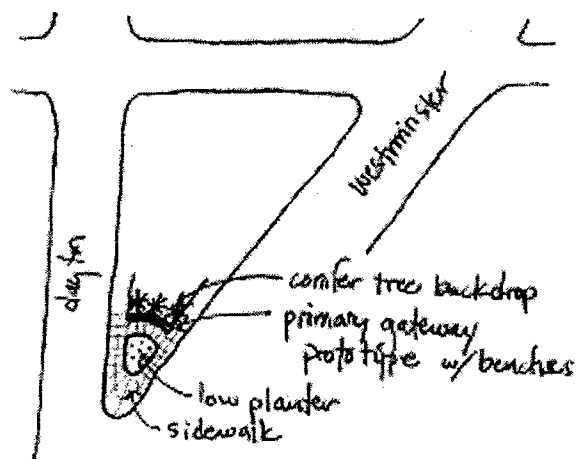 Westminster
dayton
conifer tree backdrop
primary gateway
prototype w/benches
low planter
sidewalk